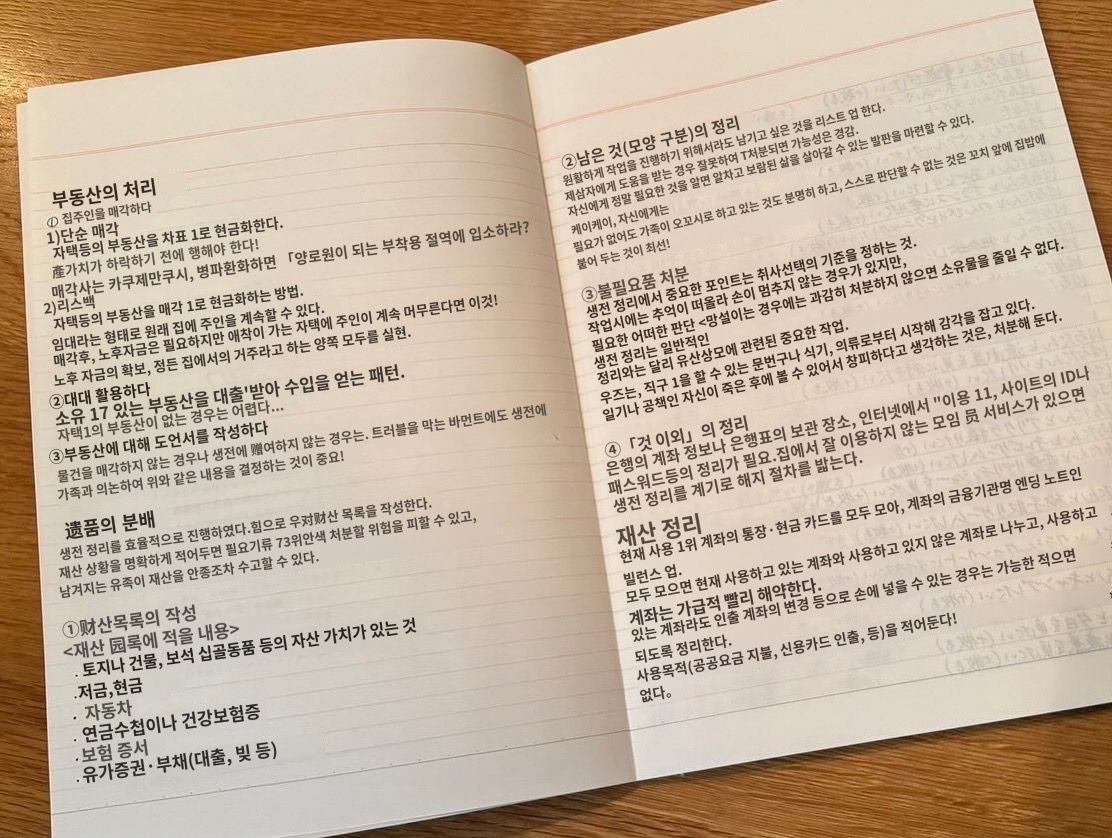 부동산의 처리
① 집주인을 매각하다
1)단순 매각
자택등의 부동산을 차표 1로 현금화한다.
產가치가 하락하기 전에 행해야 한다!
매각사는 카쿠제만쿠시, 병파환화하면 「양로원이 되는 부착용 절역에 입소하라?
2)리스백
자택등의 부동산을 매각 1로 현금화하는 방법.
임대라는 형태로 원래 집에 주인을 계속할 수 있다.
매각후, 노후자금은 필요하지만 애착이 가는 자택에 주인이 계속 머무른다면 이것!
노후 자금의 확보, 정든 집에서의 거주라고 하는 양쪽 모두를 실현.
②대대 활용하다
소유 17 있는 부동산을 대출'받아 수입을 얻는 패턴.
자택1의 부동산이 없는 경우는 어렵다...
③부동산에 대해 도언서를 작성하다
물건을 매각하지 않는 경우나 생전에 赠여하지 않는 경우는. 트러블을 막는 바먼트에도 생전에
가족과 의논하여 위와 같은 내용을 결정하는 것이 중요!
遗품의 분배
생전 정리를 효율적으로 진행하였다.힘으로 우对财산 목록을 작성한다.
재산 상황을 명확하게 적어두면 필요기류 73위안색 처분할 위험을 피할 수 있고,
남겨지는 유족이 재산을 안종조차 수고할 수 있다.
①财산목록의 작성
<재산 园록에 적을 내용>
· 토지나 건물, 보석 십골동품 등의 자산 가치가 있는 것
·저금,현금
· 자동차
· 연금수첩이나 건강보험증
· 보험 증서
· 유가증권·부채(대출, 빚 등)
②남은 것(모양 구분)의 정리
원활하게 작업을 진행하기 위해서라도 남기고 싶은 것을 리스트 업 한다.
제삼자에게 도움을 받는 경우 잘못하여 T처분되면 가능성은 경감.
자신에게 정말 필요한 것을 알면 알차고 보람된 삶을 살아갈 수 있는 발판을 마련할 수 있다.
케이케이, 자신에게는
필요가 없어도 가족이 오꼬시로 하고 있는 것도 분명히 하고, 스스로 판단할 수 없는 것은 꼬치 앞에 집밥에
붙어 두는 것이 최선!
③불필요품 처분
생전 정리에서 중요한 포인트는 취사선택의 기준을 정하는 것.
작업시에는 추억이 떠올라 손이 멈추지 않는 경우가 있지만,
필요한 어떠한 판단 <망설이는 경우에는 과감히 처분하지 않으면 소유물을 줄일 수 없다.
생전 정리는 일반적인
정리와는 달리 유산상모에 관련된 중요한 작업.
우즈는, 직구 1을 할 수 있는 문번구나 식기, 의류로부터 시작해 감각을 잡고 있다.
일기나 공책인 자신이 죽은 후에 볼 수 있어서 창피하다고 생각하는 것은, 처분해 둔다.
④ 「것 이외」의 정리
은행의 계좌 정보나 은행표의 보관 장소, 인터넷에서 "이용 11, 사이트의 ID나
패스워드등의 정리가 필요.집에서 잘 이용하지 않는 모임 员 서비스가 있으면
생전 정리를 계기로 해지 절차를 밟는다.
재산 정리
현재 사용 1위 계좌의 통장·현금 카드를 모두 모아, 계좌의 금융기관명 엔딩 노트인
빌런스 업.
모두 모으면 현재 사용하고 있는 계좌와 사용하고 있지 않은 계좌로 나누고, 사용하고
계좌는 가급적 빨리 해약한다.
있는 계좌라도 인출 계좌의 변경 등으로 손에 넣을 수 있는 경우는 가능한 적으면
되도록 정리한다.
사용목적(공공요금 지불, 신용카드 인출, 등)을 적어둔다!
없다。